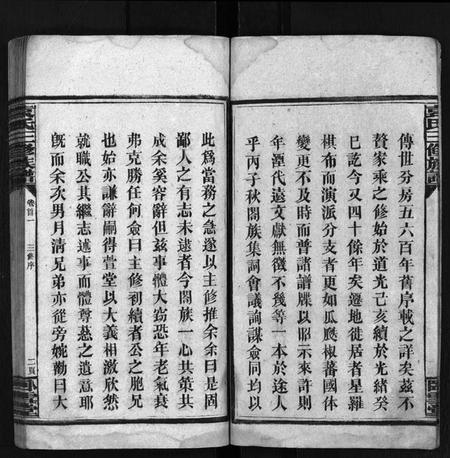 傳世分房五六百年舊序載之詳矣茲不
贅家乘之修始於道光己亥續於光緒癸
巳訖今又四十餘年矣遷地徙居者星羅
棋布而演派分支者更如瓜瓞椒蕃國体
變更不及時而普諸譜牒以昭示來許則
年湮代遠文獻無徵不幾等一本於途人
乎丙子秋閤族集詞會議詢謀僉同均以
此爲當務之急遂以主修推余余曰是固
鄙人之有志未逮者今閤族一心共策共
成余奚容辭但茲事體大竊恐年老氣衰
弗克勝任何僉曰主修到續者公之胞兄
也始亦謙辭嗣得萱堂以大義相激欣然
就職公其繼志述事而體尊慈之遺意耶
旣而余次男月清兄弟亦從旁姚勸曰大
氏三修族譜
卷首一
三修序
二頁